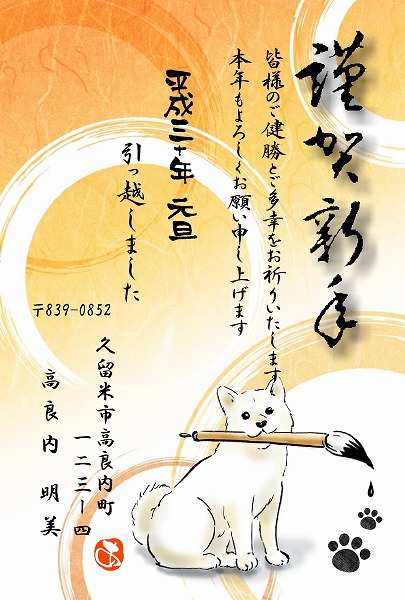 謹賀新年
皆様のご健勝とご多幸をお祈りいたします
本年もよろしくお願い申し上げます
平成三十年 元旦
引っ越しました
〒839-0852
久留米市高良内町
一二三ー四
高良内 明美